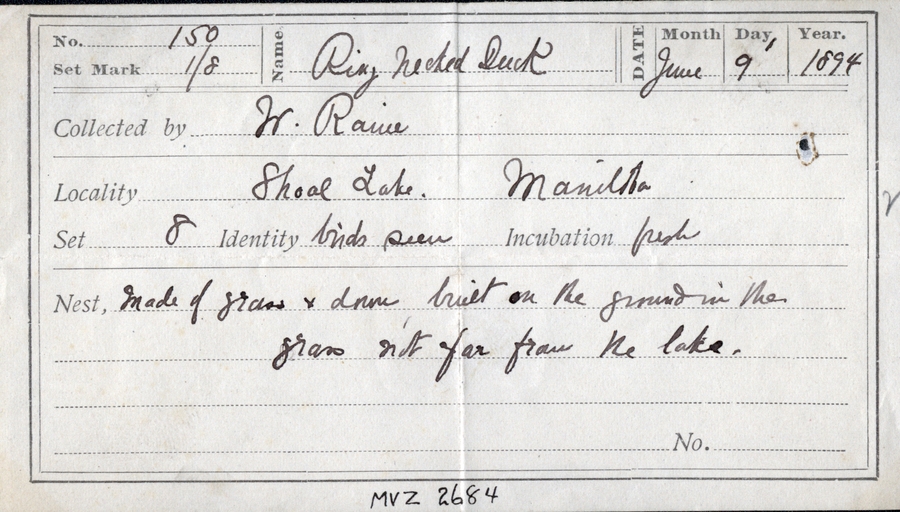 No. 150 Name Ring Necked Duck DATE Month Day, Year.
Set Mark 1/8 June 9 1894
Collected by W. Raine
Locality Shoal Lake. Manitoba
Set 8 Identity birds seen Incubation fresh
Nest, made of grass & down built on the ground in the
grass not far from the lake.
No.
MVZ 2684